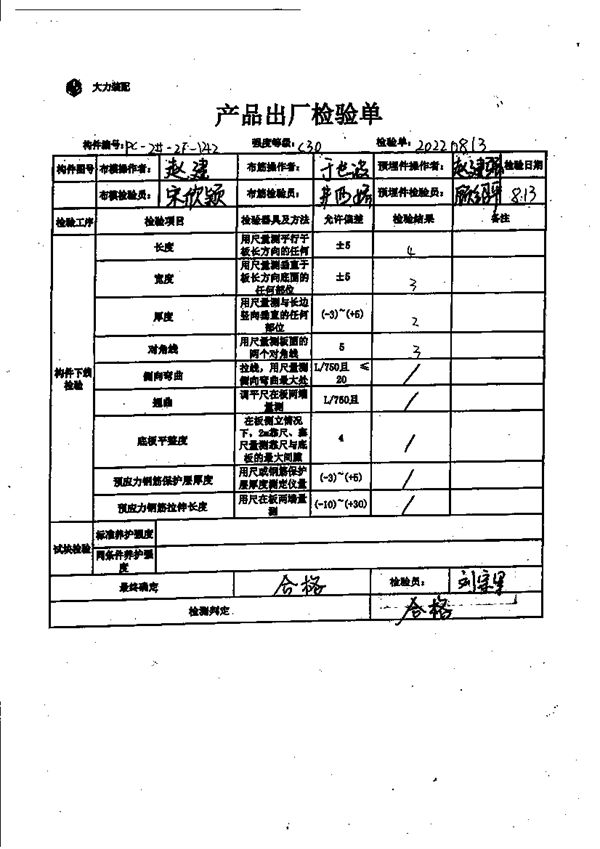 大力装配
产品出厂检验单
构件编号: PC-2#-2F-YZ42 强度等级: C30 检验单: 20220813
构件图号 布模操作者: 赵建 布筋操作者: 预埋件操作者: 赵建强 检验日期
布模检验员: 宋欣颖 布筋检验员: 预埋件检验员: 8.13
检验工序 检验项目 检验器具及方法 允许偏差 检验结果 备注
构件下线检验
长度 用尺量测平行于板长方向的任何 ±5 4
宽度 用尺量测垂直于板长方向底面的任何部位 ±5 3
厚度 用尺量测与长边竖向垂直的任何部位 (-3)~(+5) 2
对角线 用尺量测板面的两个对角线 5 3
侧向弯曲 拉线，用尺量测侧向弯曲最大处 L/750且 ≤20 /
翘曲 调平尺在板两端量测 L/750且 /
底板平整度 在板侧立情况下，2m靠尺、塞尺量测靠尺与底板的最大间隙 4 /
预应力钢筋保护层厚度 用尺或钢筋保护层厚度测定仪量 (-3)~(+5) /
预应力钢筋拉伸长度 用尺在板两端量测 (-10)~(+30) /
试块检验 标准养护强度
同条件养护强度
最终确定 合格 检验员:
检测判定 合格